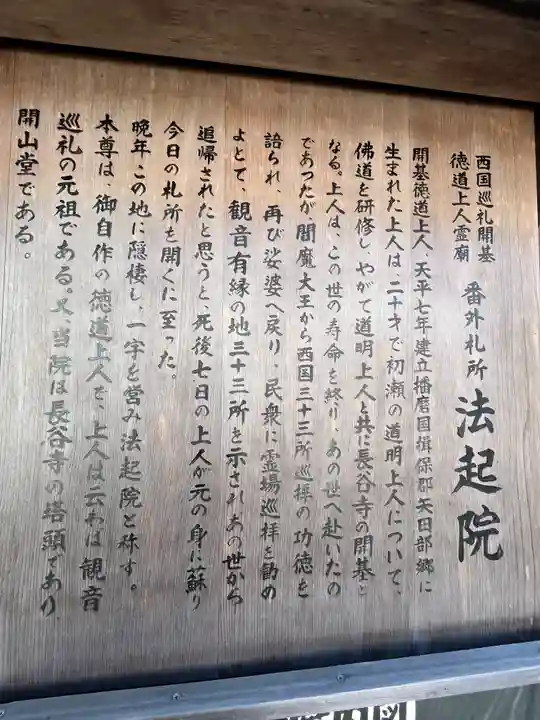 西国巡礼開基
徳道上人霊廟
番外札所 法起院
開基徳道上人、天平七年建立播磨国揖保郡矢田部郷に
生まれた上人は、二十才で初瀬の道明上人について、
佛道を研修し、やがて道明上人と共に長谷寺の開基と
なる。上人は、この世の寿命を終り、あの世へ赴いたの
であったが、閻魔大王から西国三十三所巡拝の功徳を
語られ、再び娑婆へ戻り、民衆に霊場巡拝を勧め
よとて、観音有縁の地三十三所を示され、あの世から
追帰されたと思うと、死後七日の上人が元の身に蘇り
今日の札所を開くに至った。
晩年、この地に隠棲し、一宇を営み法起院と称す。
本尊は、御自作の徳道上人で、上人は云わば観音
巡礼の元祖である。又、当院は長谷寺の塔頭であり
開山堂である。